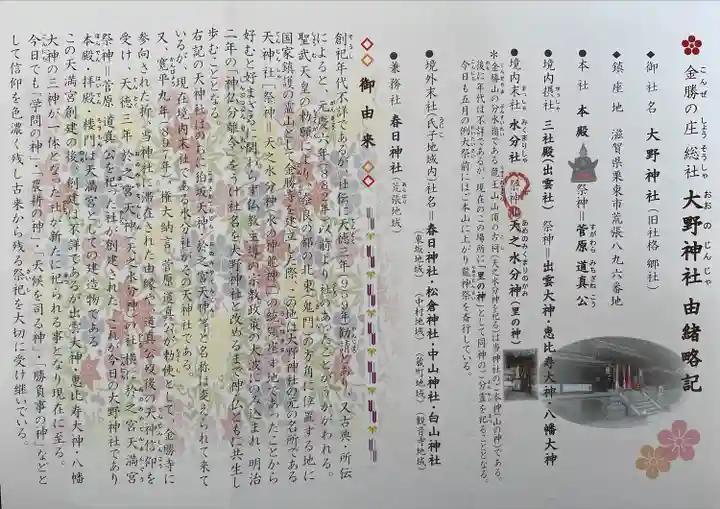 金勝の庄 総社 大野神社 由緒略記
こんぜ しょう そうしゃ おおの じんじゃ
◆御社名 大野神社(旧社格 郷社)
◆鎮座地 滋賀県栗東市荒張八九六番地
●本社 本殿 祭神=菅原 道真 公
すがわら みちざね こう
●境内摂社 三社殿(出雲社) 祭神=出雲大神・恵比寿大神・八幡大神
●境内末社 水分社 祭神=天之水分神(里の神)
まっしゃ みくまりしゃ あめのみくまりのかみ
*金勝山の分水嶺である龍王山山頂の古祠(天之水分神を祀る)は当神社のご本社(山の神)である。
後に年代は不詳であるが、現在のこの場所に「里の神」として同神のご分霊を祀ることとなる。
今日も五月の例大祭前にはご本山に上がり龍神祭を斎行している。
●境外末社(氏子地域内)社名=春日神社・松倉神社・中山神社・白山神社
(東坂地域)(中村地域)(蔵町地域)(観音寺地域)
●兼務社 春日神社(荒張地域)
◇◇ 御由来 ◇◇
創祀年代不詳であるが、社伝に天徳三年(959年)勧請とあり、又古典・所伝
によると、元慶六年(882年)以前より社があったことがうかがわれる。
聖武天皇の勅願により、奈良の都の北東(鬼門)の方角に位置する地に
国家鎮護の霊山として金勝寺を建立した際、この地は大野神社の元名所である
天神社(祭神=天之水分神(水の神龍神))の統治座す地であったことから
好むと好まざるに関わらず仏教主導の宗教政策の大波にのみ込まれ、明治
二年の「神仏分離令」をうけ社名を大野神社と改めるまで神・仏ともに共生し
歩むこととなる。
右記の天神社はのちに狛坂天神・於之宮天神等と名称は変えられて来て
いるが、現在境内末社である水分社がその天神社である。
又、寛平九年(897年)、権大納言、菅原道真公が勅使として、金勝寺に
参向された折、当神社に滞在された由縁で、道真公歿後の天神信仰を
受け、天徳三年、於之宮天神(天之水分神)の社横に於之宮天満宮
祭神=菅原道真公を祀る社が創建された。これが今日の大野神社であり
本殿・拝殿・楼門は天満宮としての建造物である。
この天満宮創建の後、創建は不詳であるが出雲大神・恵比寿大神・八幡
大神の三神が一体となった社が新たに祀られる事となり現在に至る。
今日でも「学問の神」・「農耕の神」・「天候を司る神」・「勝負事の神」などと
して信仰を色濃く残し古来から残る祭祀を大切に受け継いでいる。